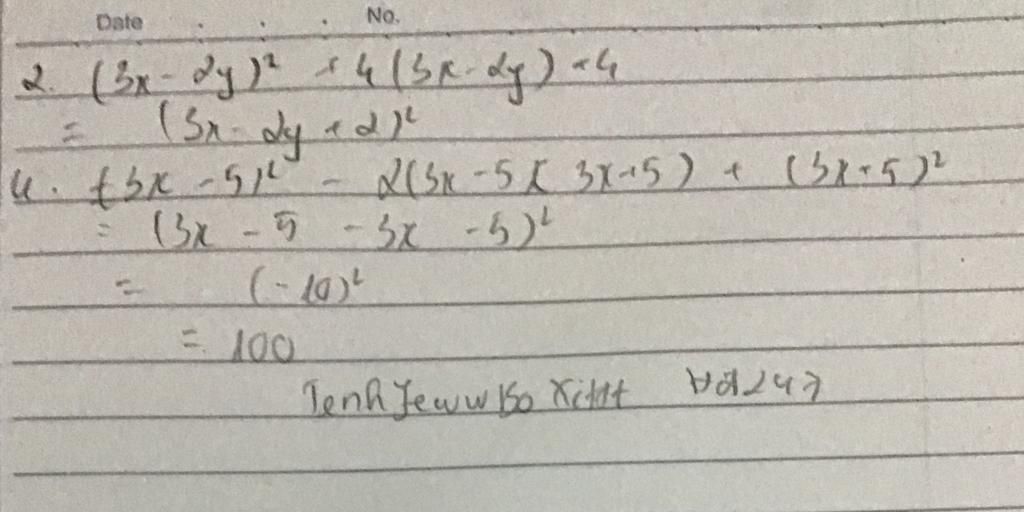 Date . . . No.
2. (3x - 2y)² + 4(3x - 2y) + 4
= (3x - 2y + 2)²
4. (3x - 5)² - 2(3x - 5)(3x + 5) + (3x + 5)²
= (3x - 5 - 3x - 5)²
= (-10)²
= 100